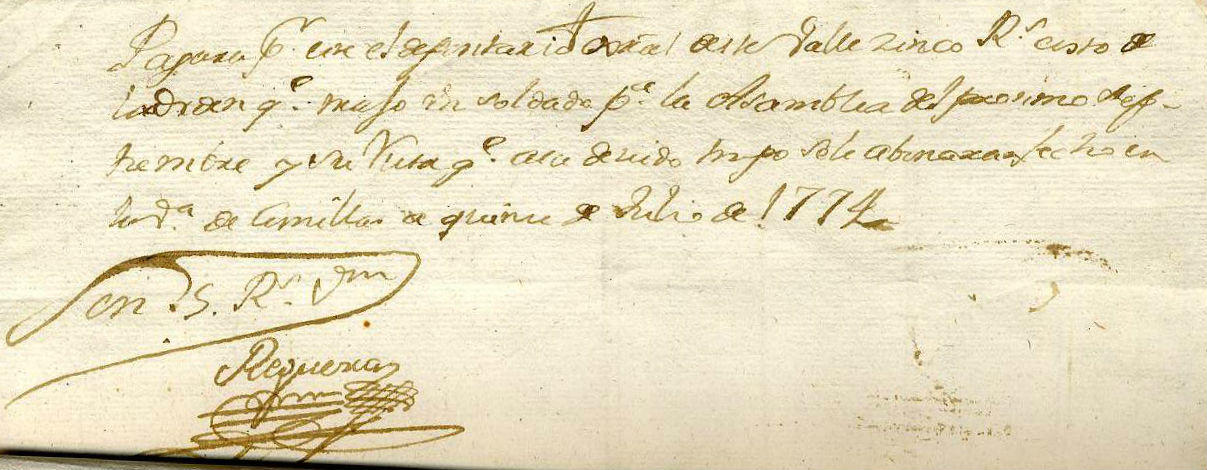 Pagara Vm. el depositario gral deste Valle zinco Rs costo de
la orden qe. trajo un soldado pa. la Asamblea del procsimo Sep-
tiembre y su Vista qe. a su devido tmpo se le abonaran fecho en
la Va. de Comillas a quince de Julio de 1774
Son 5. Rs. Vn
Regueras